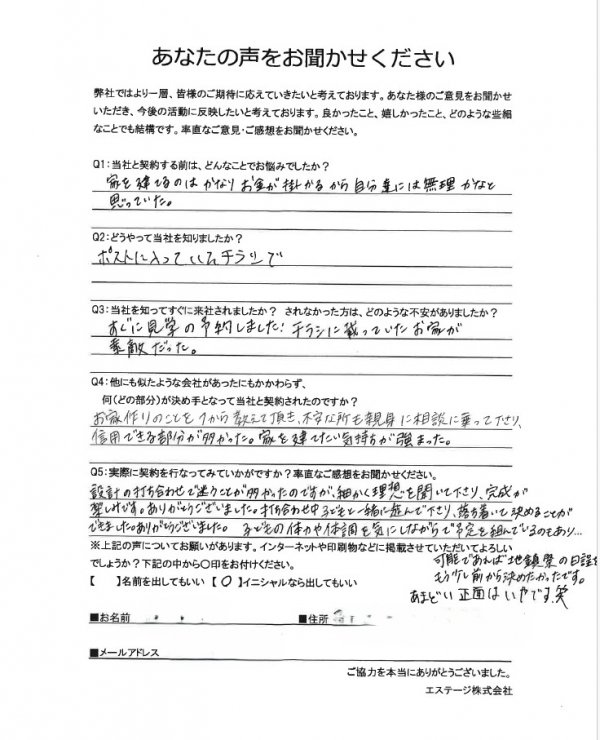 あなたの声をお聞かせください
弊社ではより一層、皆様のご期待に応えていきたいと考えております。あなた様のご意見をお聞かせ
いただき、今後の活動に反映したいと考えております。良かったこと、嬉しかったこと、どのような些細
なことでも結構です。率直なご意見・ご感想をお聞かせください。
Q1：当社と契約する前は、どんなことでお悩みでしたか？
家を建てるのは かなり お金が 掛かるから 自分達には 無理 かなと
思っていた。
Q2：どうやって当社を知りましたか？
ポストに入っていたチラシで
Q3：当社を知ってすぐに来社されましたか？ されなかった方は、どのような不安がありましたか？
すぐに見学の予約しました！チラシに載っていたお家が
素敵だった。
Q4：他にも似たような会社があったにもかかわらず、
何（どの部分）が決め手となって当社と契約されたのですか？
お家作りのことを1から教えて頂き、不安な所も親身に相談に乗って下さり、
信用できる部分が多かった。家を建てたい気持ちが強まった。
Q5：実際に契約を行なってみていかがですか？率直なご感想をお聞かせください。
設計の打ち合わせで迷うことが多かったのですが、細かく理想を聞いて下さり、完成が
楽しみです。ありがとうございました。打ち合わせ中子どもと一緒に遊んで下さり、落ち着いて決めることが
できました。ありがとうございました。 子どもの体力や体調を気にしながらで予定を組んでいるのもあり…
可能であれば地鎮祭の日程を
もう少し前から決めたかったです。
あまどい正面はいやです笑
※上記の声についてお願いがあります。インターネットや印刷物などに掲載させていただいてよろしい
でしょうか？下記の中から〇印をお付けください。
【　】名前を出してもいい 【〇】イニシャルなら出してもいい
■お名前 ■住所
■メールアドレス
ご協力を本当にありがとうございました。
エステージ株式会社